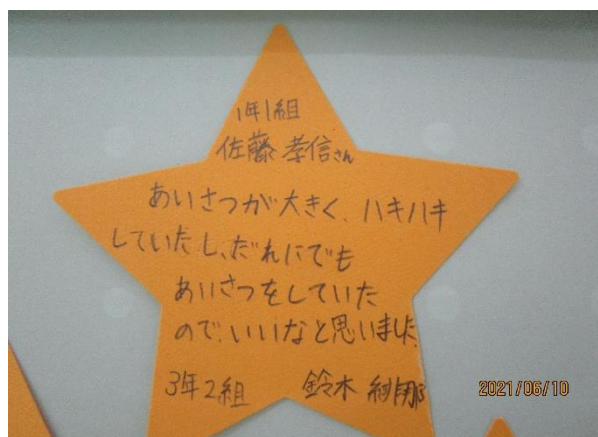 1年1組
佐藤孝信さん
あいさつが大きく、ハキハキ
していたし、だれにでも
あいさつをしていた
ので、いいなと思いました
3年2組 鈴木
2021/06/10